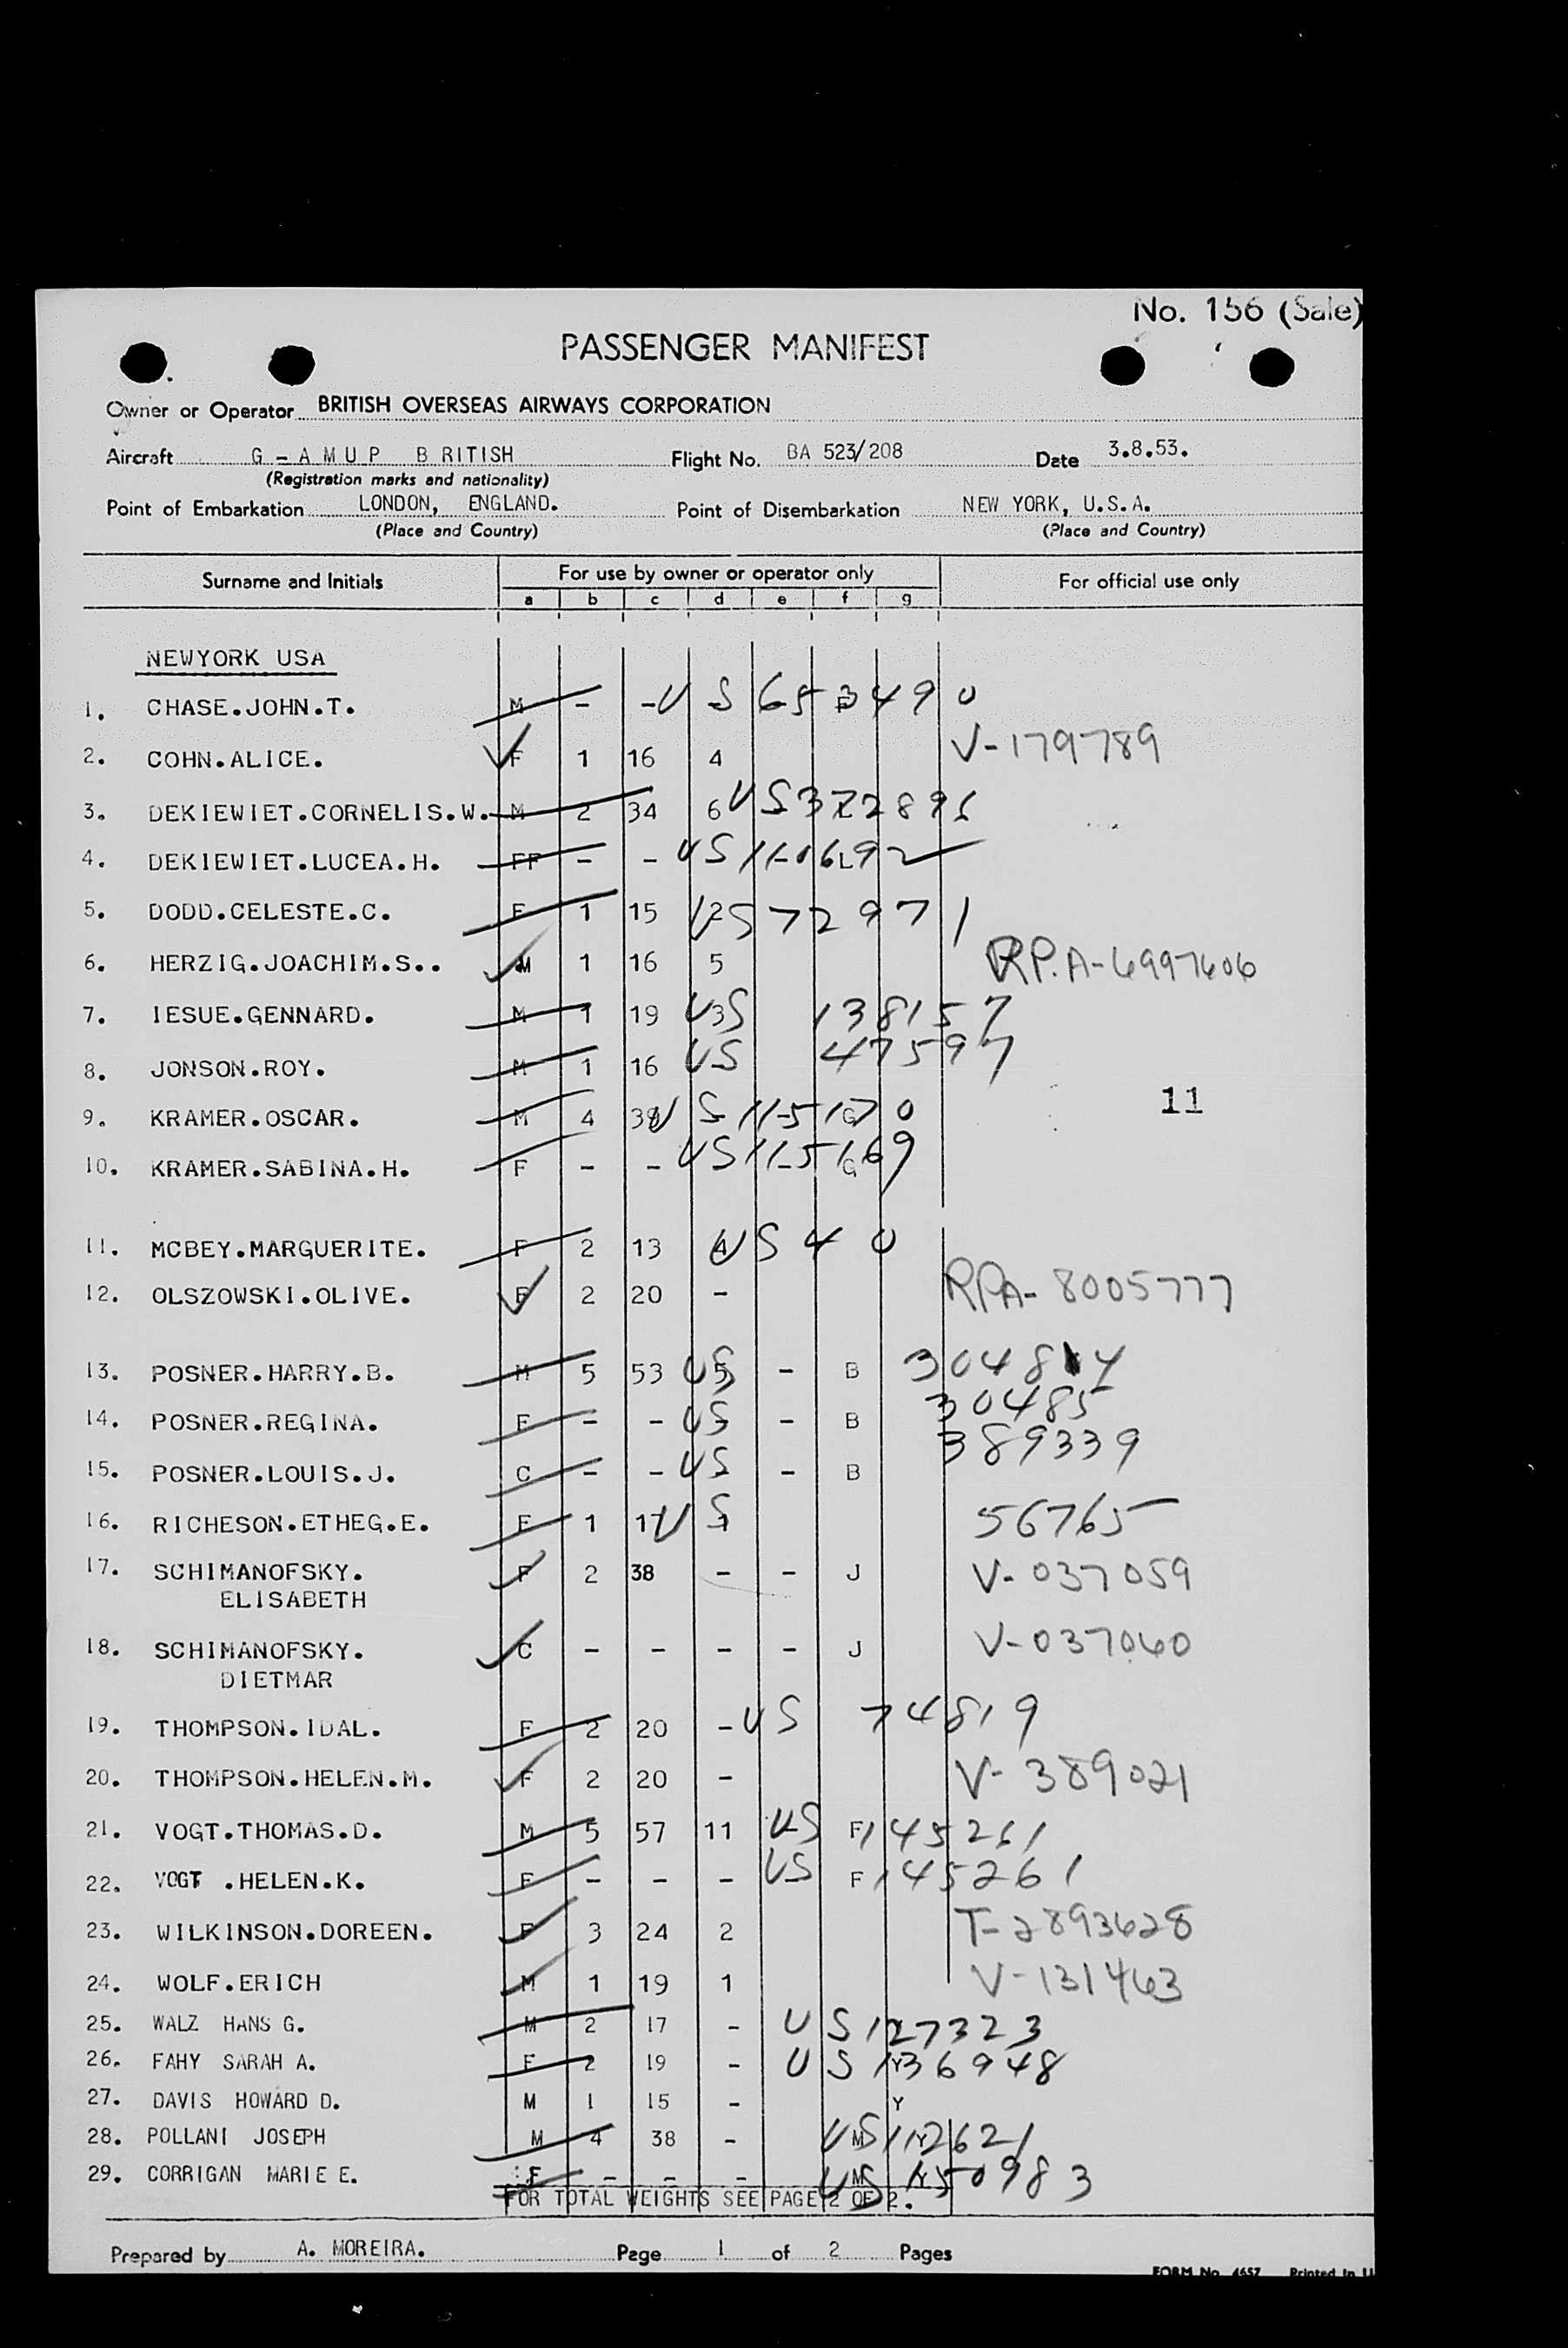 No. 156 (Sale)
PASSENGER MANIFEST
Owner or Operator BRITISH OVERSEAS AIRWAYS CORPORATION
Aircraft G - A M U P B RITISH Flight No. BA 523/208 Date 3.8.53.
(Registration marks and nationality)
Point of Embarkation LONDON, ENGLAND. Point of Disembarkation NEW YORK, U.S.A.
(Place and Country) (Place and Country)
Surname and Initials For use by owner or operator only For official use only
a b c d e f g
NEWYORK USA
1. CHASE.JOHN.T. M - - US 653490
2. COHN.ALICE. F 1 16 4 V-179789
3. DEKIEWIET.CORNELIS.W. M 2 34 6 US
4. DEKIEWIET.LUCEA.H. FF - - US L
5. DODD.CELESTE.C. F 1 15 2 US 72971
6. HERZIG.JOACHIM.S.. M 1 16 5 RP.A-6997606
7. IESUE.GENNARD. M 1 19 3 US 138157
8. JONSON.ROY. M 1 16 - US 47597
9. KRAMER.OSCAR. M 4 39 - US 115170 G
11
10. KRAMER.SABINA.H. F - - US 115169 G
11. MCBEY.MARGUERITE. F 2 13 4 US 40
12. OLSZOWSKI.OLIVE. F 2 20 - RPA-8005777
13. POSNER.HARRY.B. M 5 53 5 US - B
14. POSNER.REGINA. F - - - US - B 30485
15. POSNER.LOUIS.J. C - - - US - B 389339
16. RICHESON.ETHEG.E. F 1 17 1 US 56765
17. SCHIMANOFSKY. F 2 38 - - J V-037059
ELISABETH
18. SCHIMANOFSKY. C - - - - J V-037060
DIETMAR
19. THOMPSON.IDAL. F 2 20 - US 74819
20. THOMPSON.HELEN.M. F 2 20 - V-389021
21. VOGT.THOMAS.D. M 5 57 11 US F 145261
22. VOGT .HELEN.K. F - - - US F 145261
23. WILKINSON.DOREEN. F 3 24 2 T-2893628
24. WOLF.ERICH M 1 19 1 V-131463
25. WALZ HANS G. M 2 17 - US 127323
26. FAHY SARAH A. F 2 19 - US Y 136948
27. DAVIS HOWARD D. M 1 15 - Y
28. POLLANI JOSEPH M 4 38 - US M Y 112621
29. CORRIGAN MARIE E. F - - - US M Y 150983
FOR TOTAL WEIGHTS SEE PAGE 2 OF 2.
Prepared by A. MOREIRA. Page 1 of 2 Pages
FORM No. 4657 Printed in